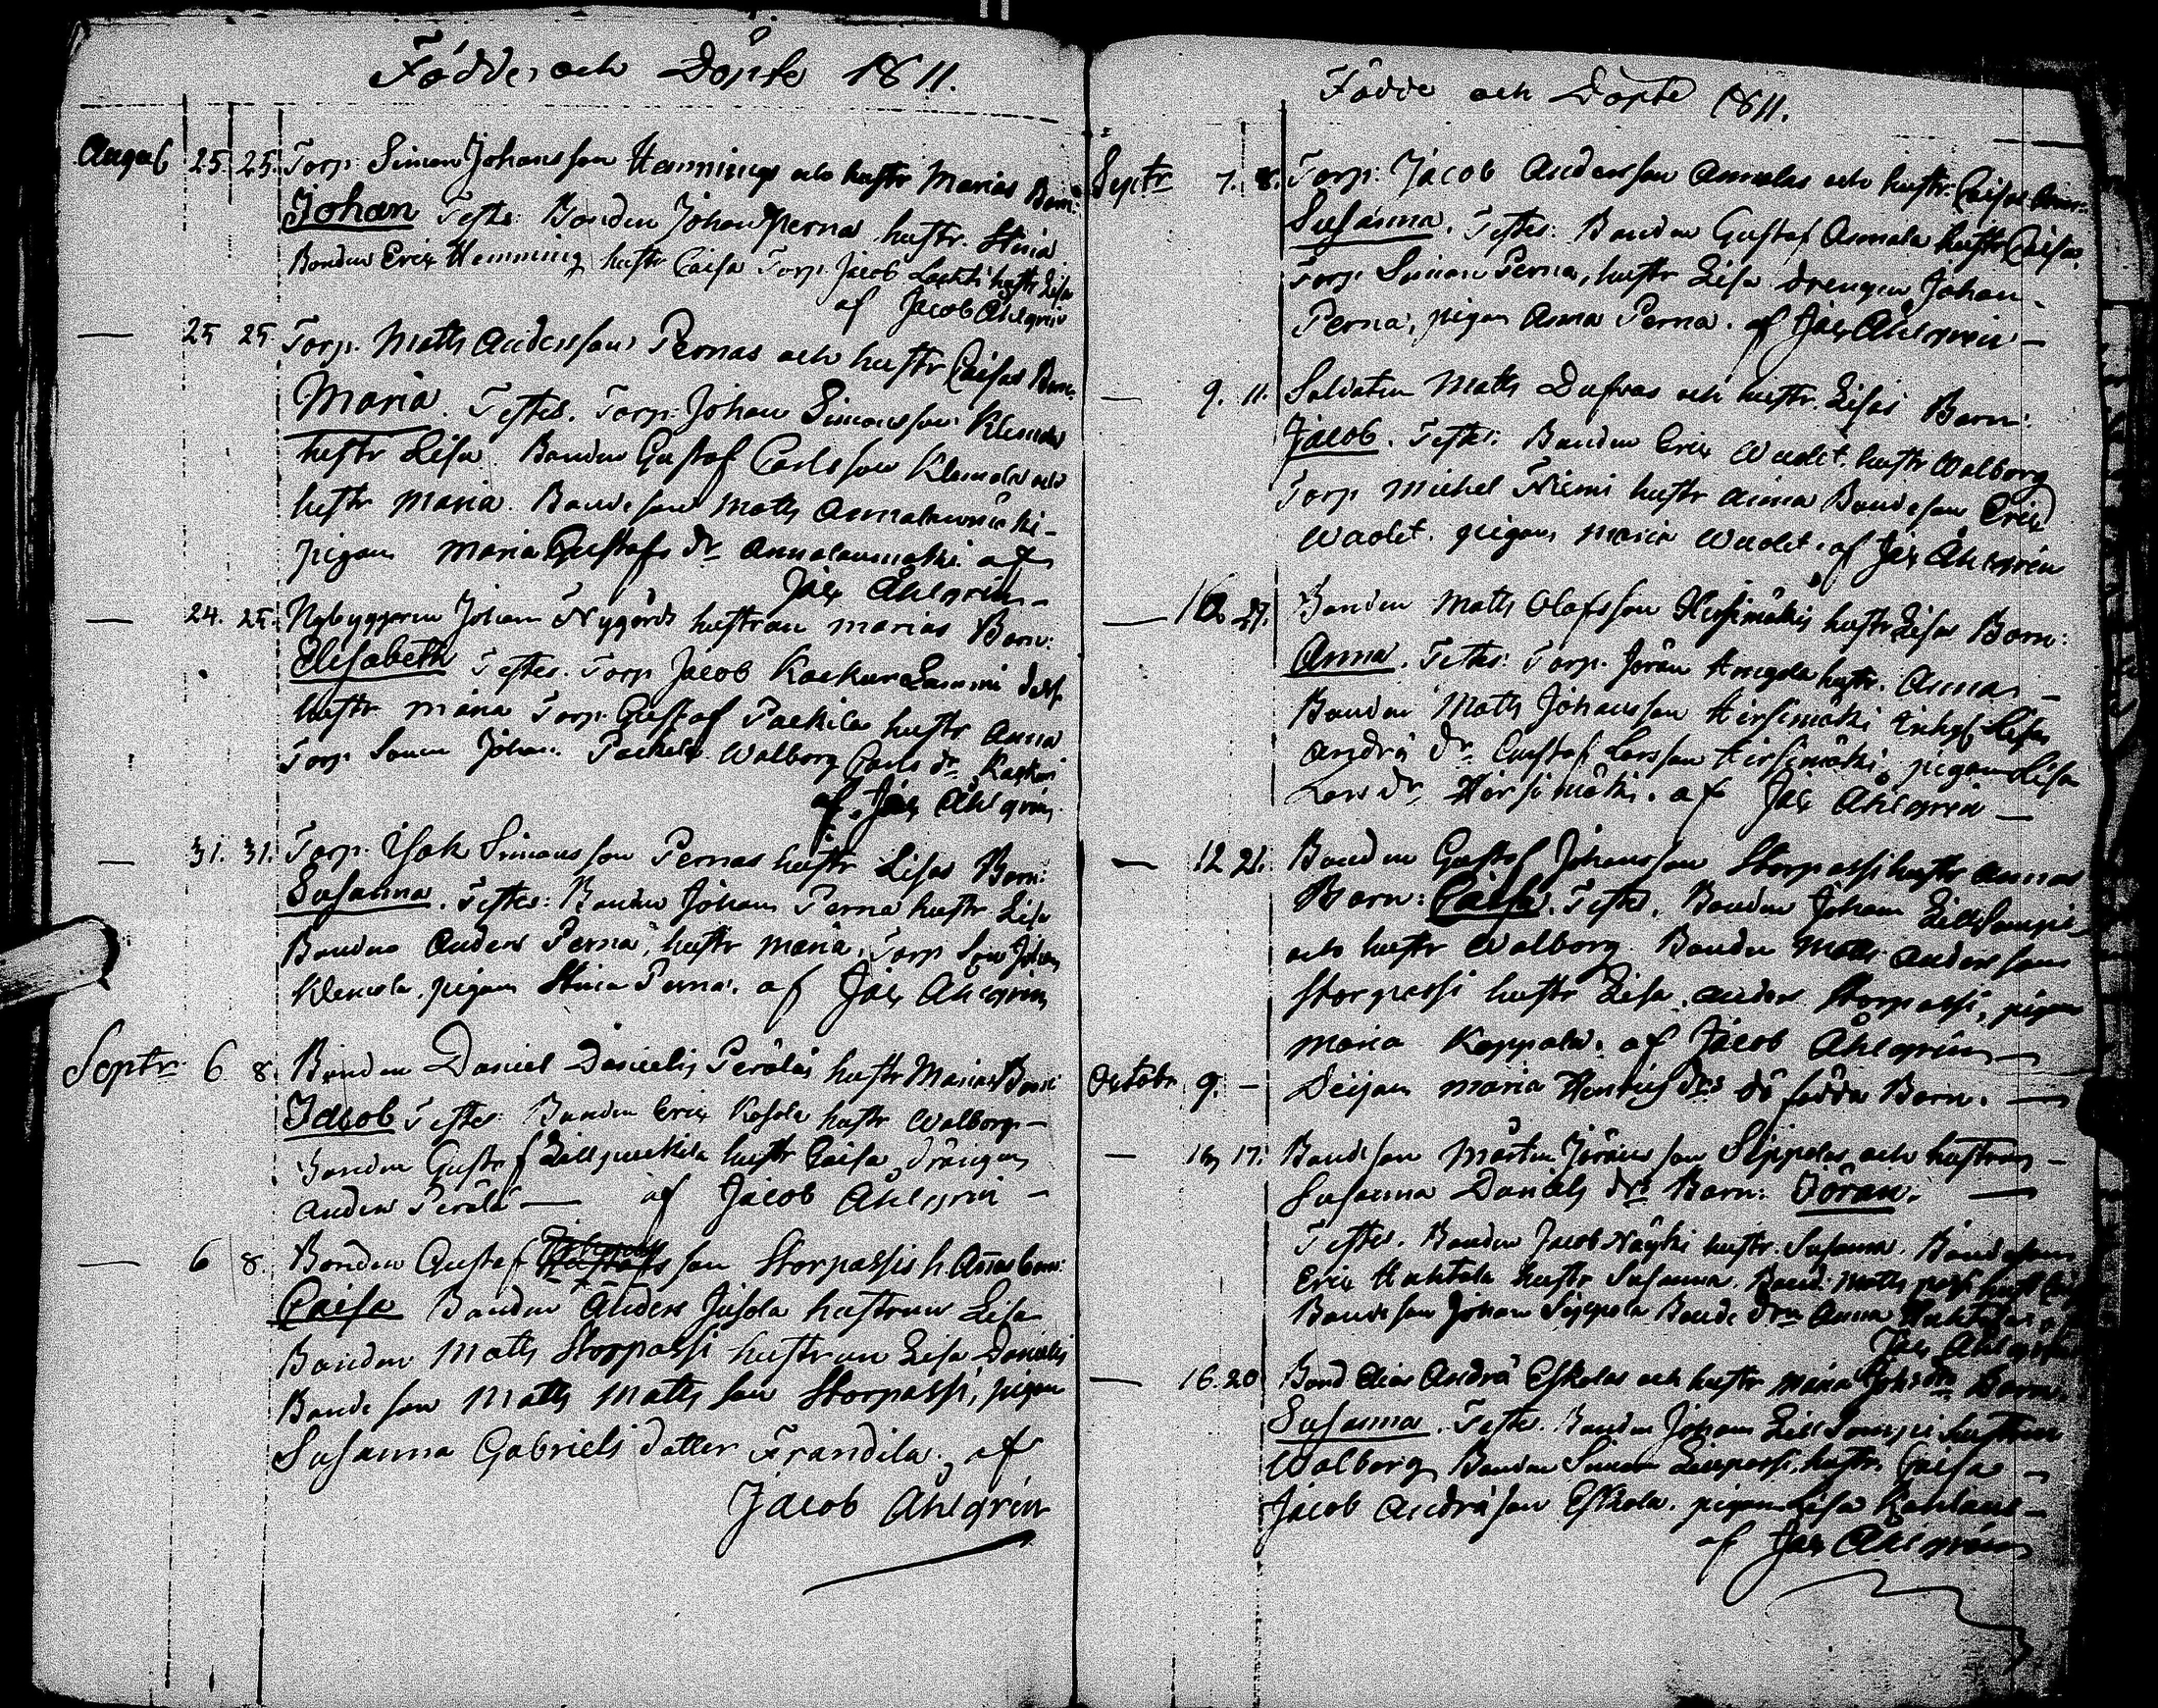 Födde och Döpte 1811.
August 25. 25. Torp. Simon Johansson Hemmings och hustr Marias Barn:
Johan Testes: Bonden Johan Perna hustr. Stina
Bonden Eric Hemming hustr Caisa Torp. Jacob Lachti hustr Lisa
af Jacob Åhlgrén
— 25 25 Torp. Matts Andersson Pernas och hustr Caisas Barn
Maria. Testes. Torp: Johan Simonsson Klemola
hustr Lisa Bonden Gustaf Carlsson Klemola och
hustr Maria. Bondeson Matts Annalaumäki
pigan Maria Gustafs dr Annalaumäki af
Jac Åhlgrén —
— 24. 25. Nybyggaren Johan Nygårds hustrun Marias Barn:
Elisabeth Testes. Torp Jacob
hustr Maria Torp. Gustaf Packila hustr Anna
Torp Sonen Johan Packila Walborg Carls dr
af Jac Åhlgrén
— 31. 31. Torp. Isak Simonsson Pernas hustr Lisas Barn:
Susanna. Testes: Bonden Johan Perna hustr Lisa
Bonden Anders Perna, hustr Maria, Torp Son Johan
Klemola. pigan Stina Perna. af Jac Åhlgrén
Septr 6 8. Bonden Daniel Daniels Peräläs hustr Marias Barn
Jacob Testes: Bonden Eric Kosola hustr Walborg —
Bonden Gustaf hustr Caisa drängen
Anders Perälä — af Jacob Åhlgrén —
— 6 8. Bonden Gustaf Johans son Storpassis h. Annas barn:
Caisa Bonden Anders Jusola hustrun Lisa
Bonden Matts Storpassi hustrun Lisa Daniels
Bonde son Matts Matts son Storpassi, pigan
Susanna Gabriels dotter Frandila, af
Jacob Åhlgrén
Födde och Döpte 1811.
Septr 7. 8. Torp: Jacob Andersson Annalas och hustr. Caisas Barn:
Susanna. Testes: Bonden Gustaf Annala hustr Caisa
Torp Simon Perna, hustr Lisa drengen Johan
Perna, pigan Anna Perna. af Jac Åhlgrén —
— 9. 11. Soldaten Matts Dufvas och hustr. Lisas Barn:
Jacob. Testes: Bonden Eric Wadet. hustr Walborg
Torp Michel Niemi hustr Anna Bondeson Eric
Wadet. pigan Maria Wadet. af Jac Åhlgrén
— Bonden Matts Olofsson Hirsimäkis hustr Lisas Barn:
Anna. Testes: Torp. Jöran hustr. Anna —
Bonden Matts Johansson Hirsimäki Lisa
Andrä dr. Gustaf Larsson Hirsimäki, pigan Lisa
Lars dr. Hirsimäki. af Jac Åhlgrén —
— 12 21. Bonden Gustaf Johansson Storpassi hustr Annas
Barn: Caisa. Testes. Bonden Johan Lill Sompi
och hustr Walborg Bonden Matts Andersson
Storpassi hustr Lisa. Anders Storpassi, pigan
Maria Koppala. af Jacob Åhlgrén —
October 9. — Deijan Maria Henrics drs dö födda Barn. —
— 17. Bondeson Mårten Jöransson Sippolas och hustrun —
Susanna Daniels drs Barn: Jöran. —
Testes. Bonden Jacob Näyki hustr. Susanna. Bondeson
Eric Huhtala hustr Susanna. Bond: Matts
Bondeson Johan Sippola Bonde drn Anna Huhtala
Jac Åhlgrén
— 16. 20 Bond Elias Andrä Eskolas och hustr Maria Johs drs Barn.
Susanna. Testes. Bonden Johan Lill Sompi hustrun
Walborg Bonden Simon hustr. Caisa —
Jacob Andrä son Eskola. pigan Lisa
af Jac Åhlgrén